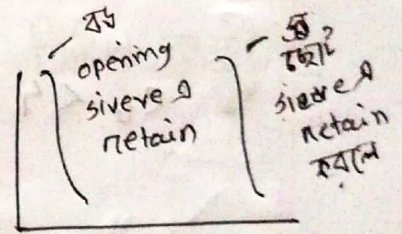 বড়
opening
sieve এ
retain
ছোট
sieve এ
retain
করলে